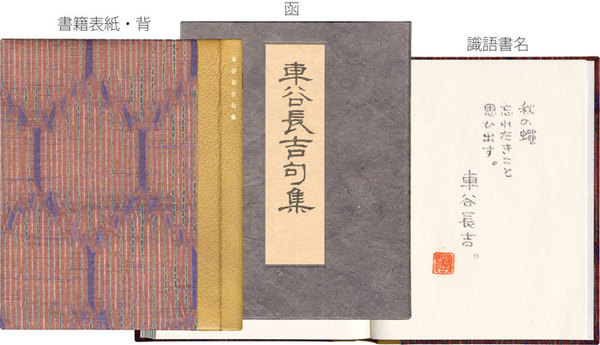 書籍表紙・背
函
識語書名
車谷長吉句集
車谷長吉句集
秋の蠅
忘れたきこと
思ひ出す。
車谷長吉。